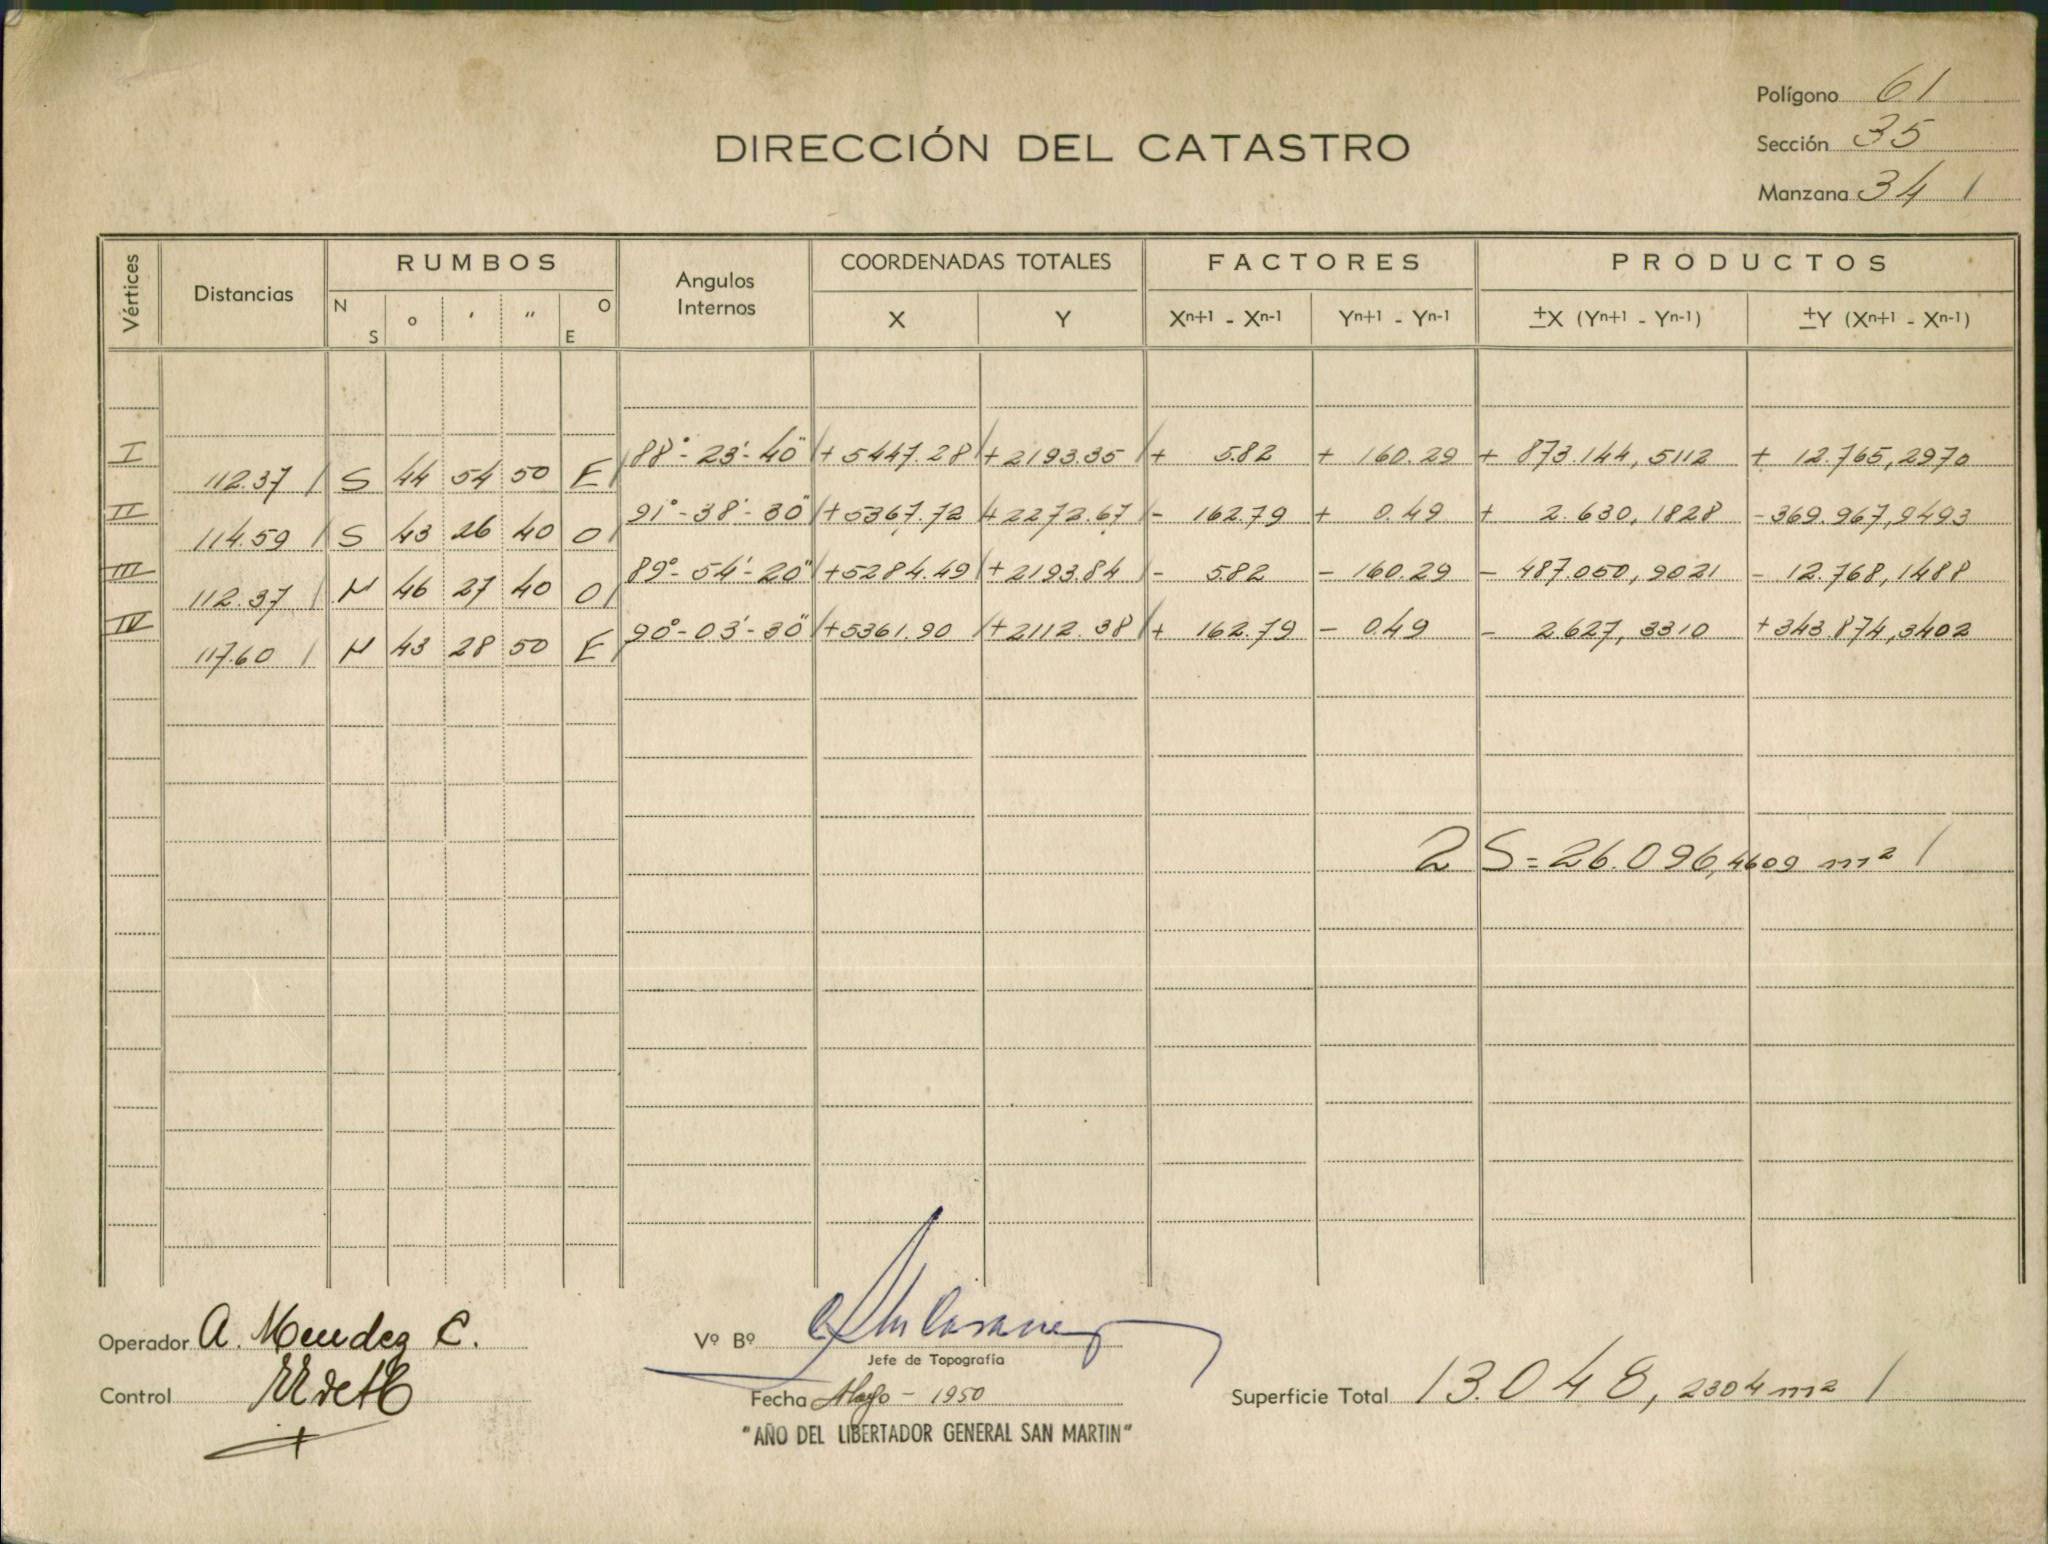 Polígono 61
DIRECCIÓN DEL CATASTRO
Sección 35
Manzana 34 /
Vértices Distancias RUMBOS Angulos Internos COORDENADAS TOTALES FACTORES PRODUCTOS
N S ° ' " O E X Y Xn+1 - Xn-1 Yn+1 - Yn-1 ±X (Yn+1 - Yn-1) ±Y (Xn+1 - Xn-1)
I 88° - 23' - 40" / + 5447.28 / + 2193.35 / + 5.82 + 160.29 + 873.144,5112 + 12.765,2970
112.37 / S 44 54 50 E /
II 91° - 38' - 30" / + 5367.72 / + 2272.67 / - 162.79 + 0.49 + 2.630,1828 - 369.967,9493
114.59 / S 43 26 40 O /
III 89° - 54' - 20" / + 5284.49 / + 2193.84 / - 5.82 - 160.29 - 487.050,9021 - 12.768,1488
112.37 / N 46 27 40 O /
IV 90° - 03' - 30" / + 5361.90 / + 2112.38 / + 162.79 - 0.49 - 2.627,3310 + 343.874,3402
117.60 / N 43 28 50 E /
2 S = 26.096,4609 m² /
Operador A. Mendez C.
Vº Bº
Jefe de Topografía
Control
Fecha Mayo - 1950
Superficie Total 13.048,2304 m² /
"AÑO DEL LIBERTADOR GENERAL SAN MARTIN"